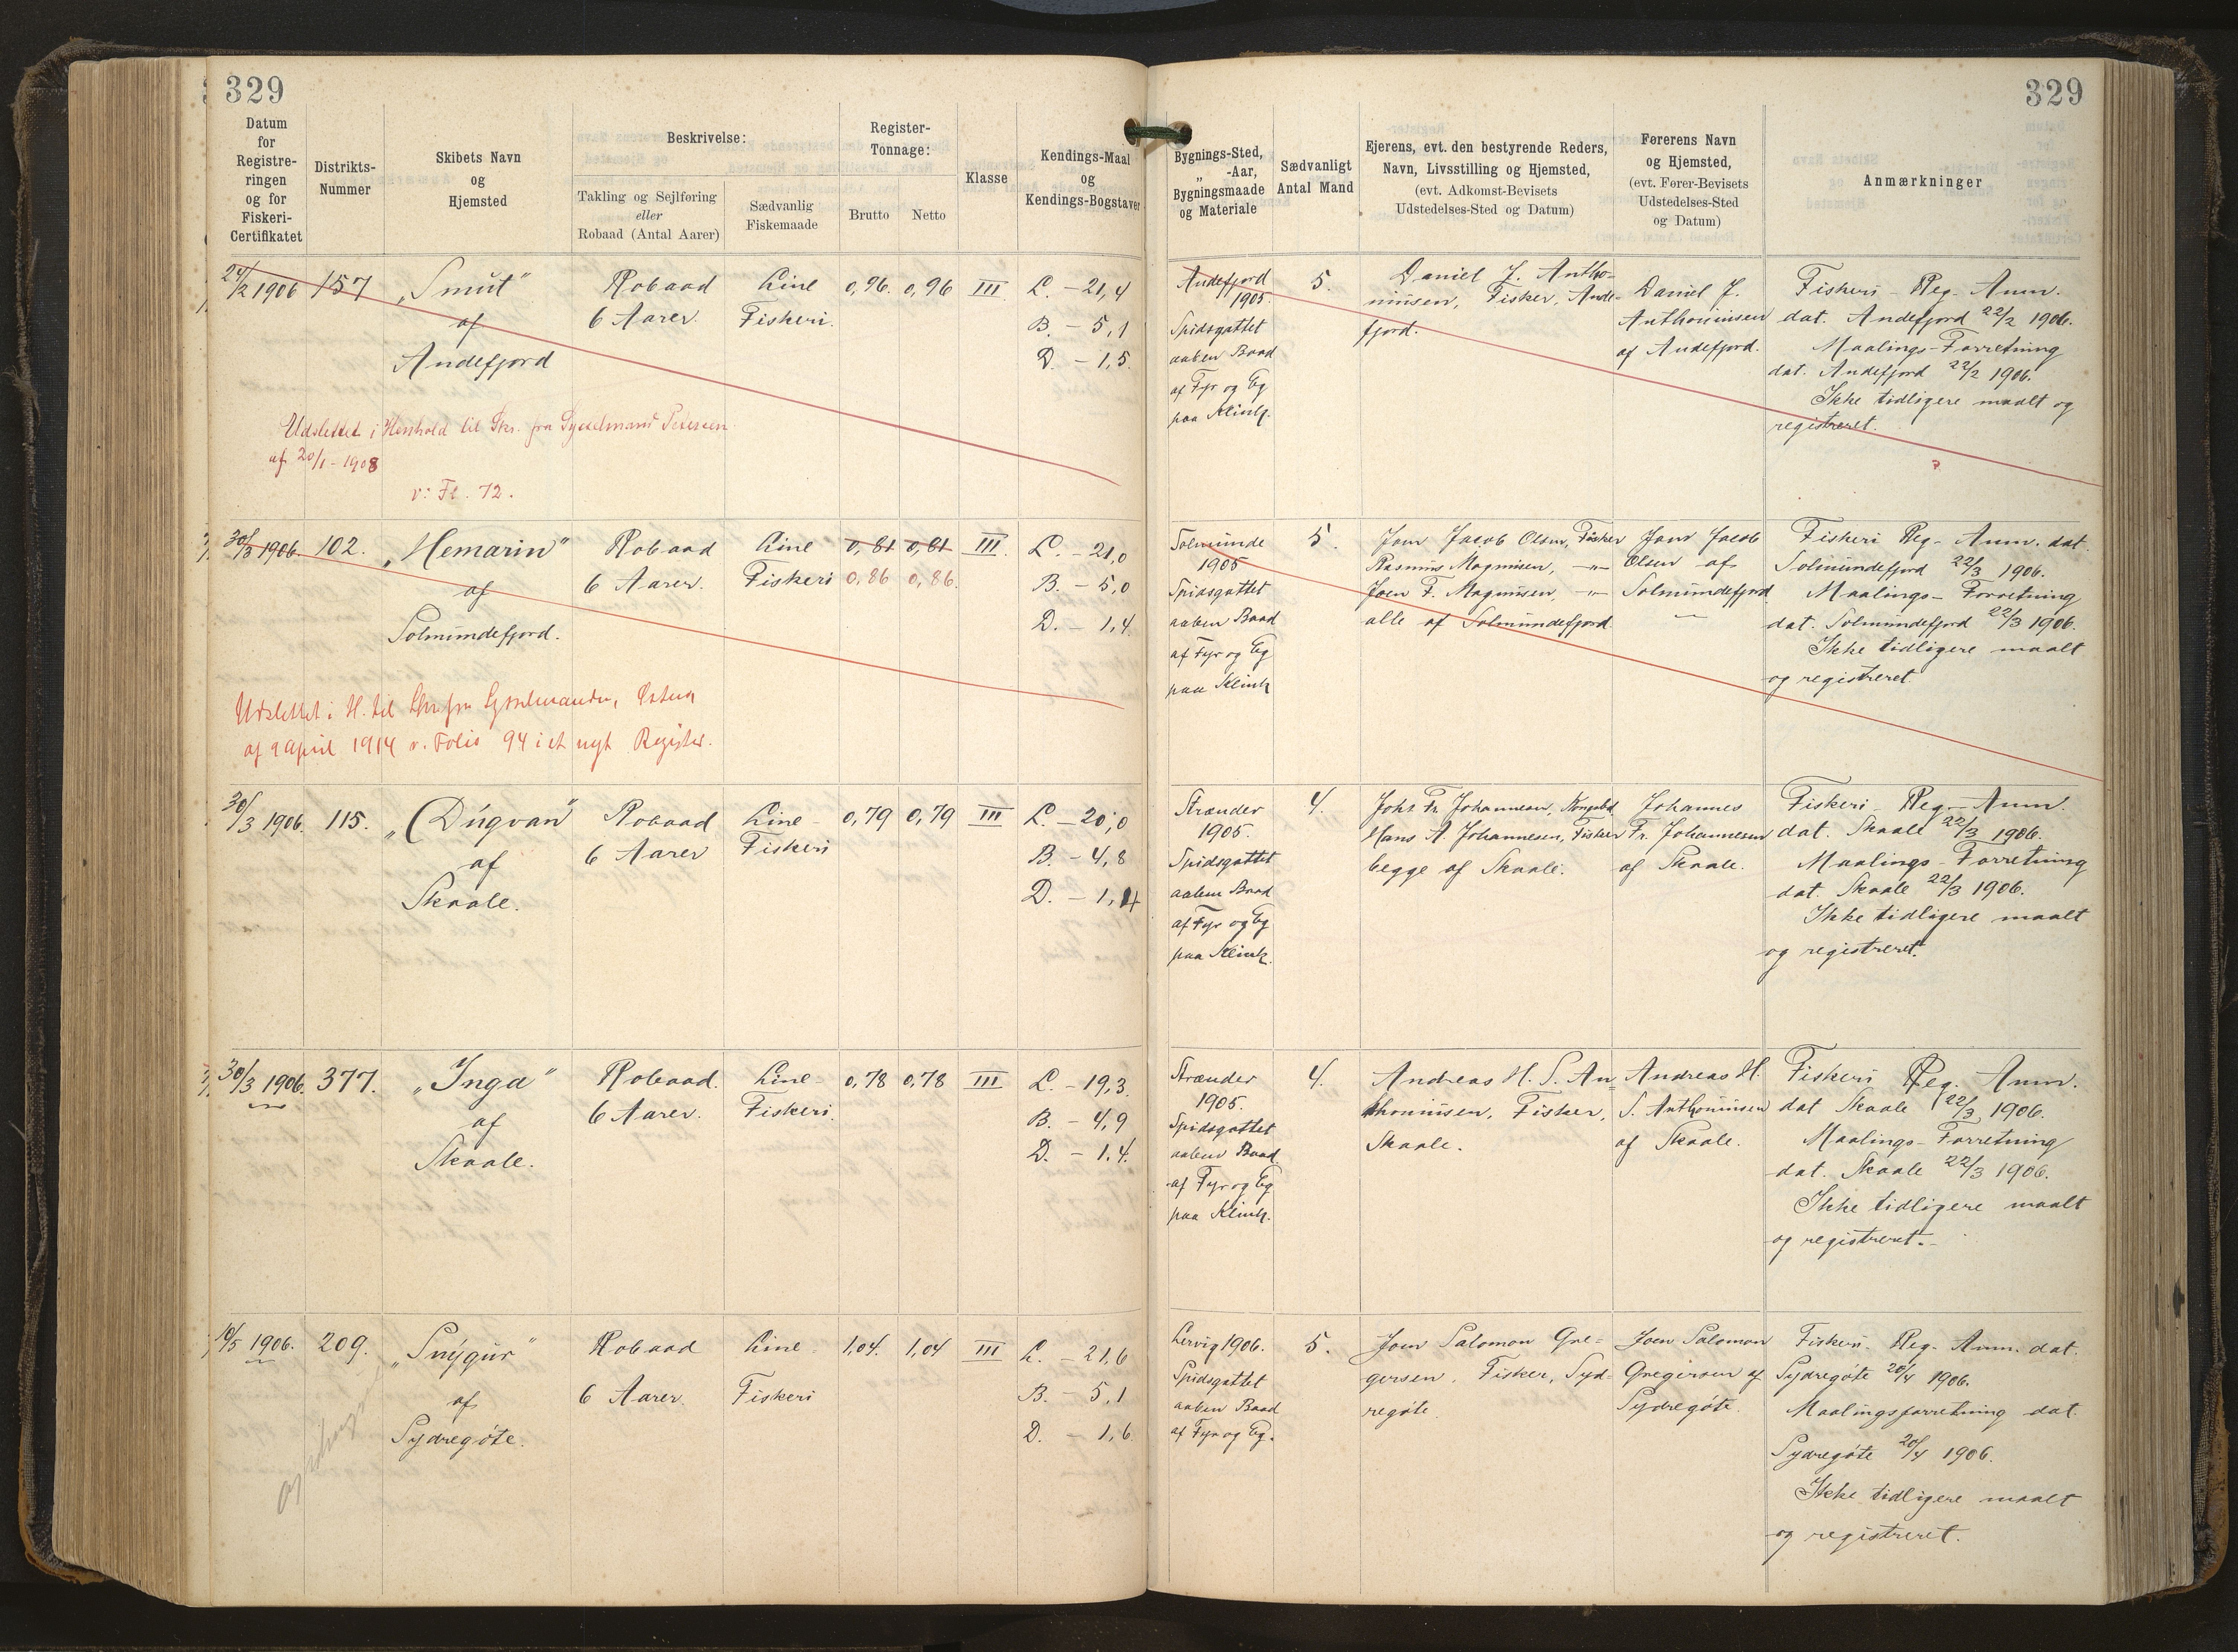 329
329
Datum
for
Registre-
ringen
og for
Fiskeri-
Certifikatet
Distrikts-
Nummer
Skibets Navn
og
Hjemsted
Beskrivelse:
Takling og Sejlføring
eller
Robaad (Antal Aarer)
Sædvanlig
Fiskemaade
Register-
Tonnage:
Brutto
Netto
Klasse
Kendings-Maal
og
Kendings-Bogstaver
Bygnings-Sted,
„ -Aar,
Bygningsmaade
og Materiale
Sædvanligt
Antal Mand
Ejerens, evt. den bestyrende Reders,
Navn, Livsstilling og Hjemsted,
(evt. Adkomst-Bevisets
Udstedelses-Sted og Datum)
Førerens Navn
og Hjemsted,
(evt. Fører-Bevisets
Udstedelses-Sted
og Datum)
Anmærkninger
24/2 1906
157
„Smút"
af
Andefjord
Robaad
6 Aarer.
Line
Fiskeri.
0,96.
0,96
III
L. - 21,4
B. - 5,1
D. - 1,5.
Andefjord
1905.
Spidsgattet
aaben Baad
af Fyr og Eg
paa Klink.
5.
Daniel J. Antho-
niusen, Fisker, Ande-
fjord.
Daniel J.
Anthoniusen
af Andefjord.
Fiskeri - Reg. Anm.
dat. Andefjord 22/2 1906.
Maalings-Forretning
dat. Andefjord 22/2 1906.
Ikke tidligere maalt og
registreret.
Udslettet i Henhold til Skr. fra Sysselmand Petersen
af 20/1 - 1908
v: Fl. 72.
30/3 1906.
102.
„Hemarin"
af
Solmundefjord.
Robaad
6 Aarer.
Line
Fiskeri
0,81
0,81
0,86
0,86.
III
L. - 21,0
B. - 5,0
D. - 1,4.
Solmunde
1905
Spidsgattet
aaben Baad
af Fyr og Eg
paa Klink
5.
Joen Jacob Olsen, Fisker
Rasmus Magnusen, -"-
Joen F. Magnusen, -"-
alle af Solmundefjord.
Joen Jacob
Olsen af
Solmundefjord
Fiskeri Reg- Anm. dat.
Solmundefjord 22/3 1906.
Maalings- Forretning
dat. Solmundefjord 22/3 1906.
Ikke tidligere maalt
og registreret.
Udslettet i H. til Skr. fra Sysselmanden,
af 9 April 1914 v. Folio 94 i et nyt Register.
30/3 1906.
115.
„Dúgvan"
af
Skaale.
Robaad
6 Aarer
Line-
Fiskeri
0,79
0,79
III
L. - 20,0
B. - 4,8
D. - 1,4
Strænder
1905.
Spidsgattet
aaben Baad
af Fyr og Eg
paa Klink.
4.
Johs Fr. Johannesen, Kongsbd.
Hans A. Johannesen, Fisker
begge af Skaale.
Johannes
Fr. Johannesen
af Skaale.
Fiskeri - Reg- Anm.
dat. Skaale 22/3 1906.
Maalings - Forretning
dat. Skaale 22/3 1906.
Ikke tidligere maalt
og registreret.
30/3 1906.
377.
„Inga"
af
Skaale.
Robaad.
6 Aarer.
Line-
Fiskeri.
0,78
0,78
III
L. - 19,3
B. - 4,9
D. - 1,4.
Strænder
1905.
Spidsgattet
aaben Baad.
af Fyr og Eg
paa Klink.
4.
Andreas H. S. An-
thoniusen, Fisker,
Skaale.
Andreas H.
S. Anthoniusen
af Skaale.
Fiskeri Reg. Anm.
dat Skaale 22/3 1906.
Maalings - Forretning
dat. Skaale 22/3 1906.
Ikke tidligere maalt
og registreret.
10/5 1906.
209.
„Snýgur"
af
Sydregøte.
Robaad
6 Aarer.
Line-
Fiskeri
1,04.
1,04
III
L. - 21,6
B. - 5,1
D. - 1,6.
Lervig 1906.
Spidsgattet
aaben Baad
af Fyr og Eg.
5.
Joen Salomon Gre-
gersen. Fisker, Syd-
regøte.
Joen Salomon
Gregersen af
Sydregøte.
Fiskeri. Reg. Anm. dat.
Sydregøte 20/4 1906.
Maalingsforretning dat.
Sydregøte 20/4 1906.
Ikke tidligere maalt
og registreret.